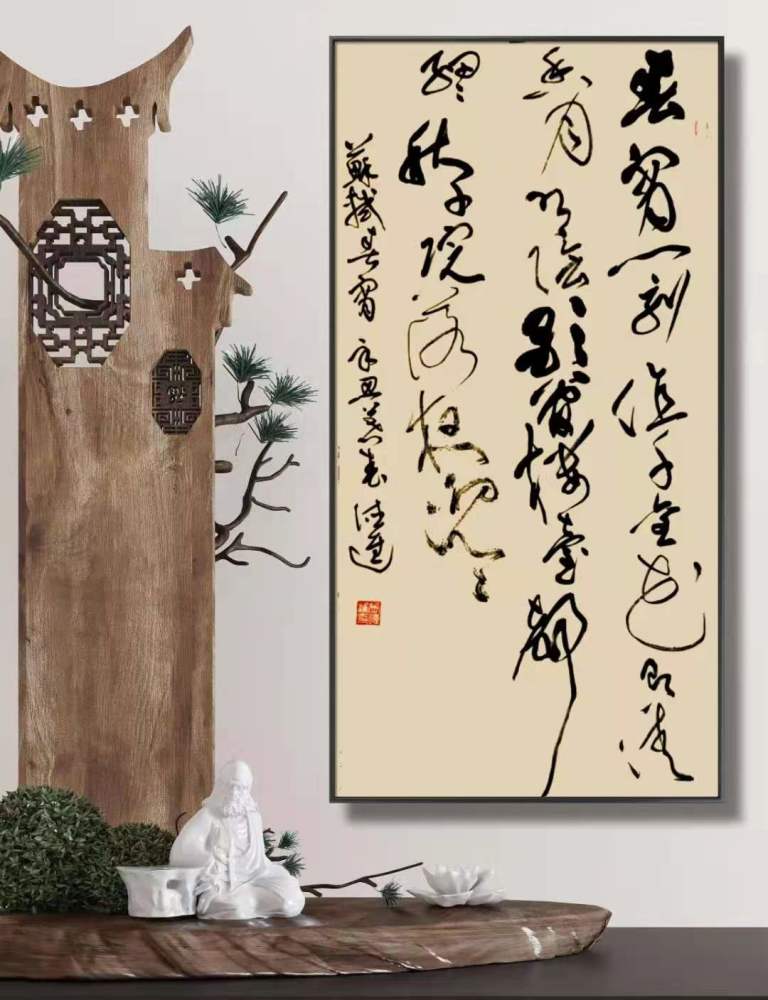 春宵一刻值千金花有清
香月有陰歌管樓臺聲
細秋千院落夜沉〻
蘇軾春宵 辛丑